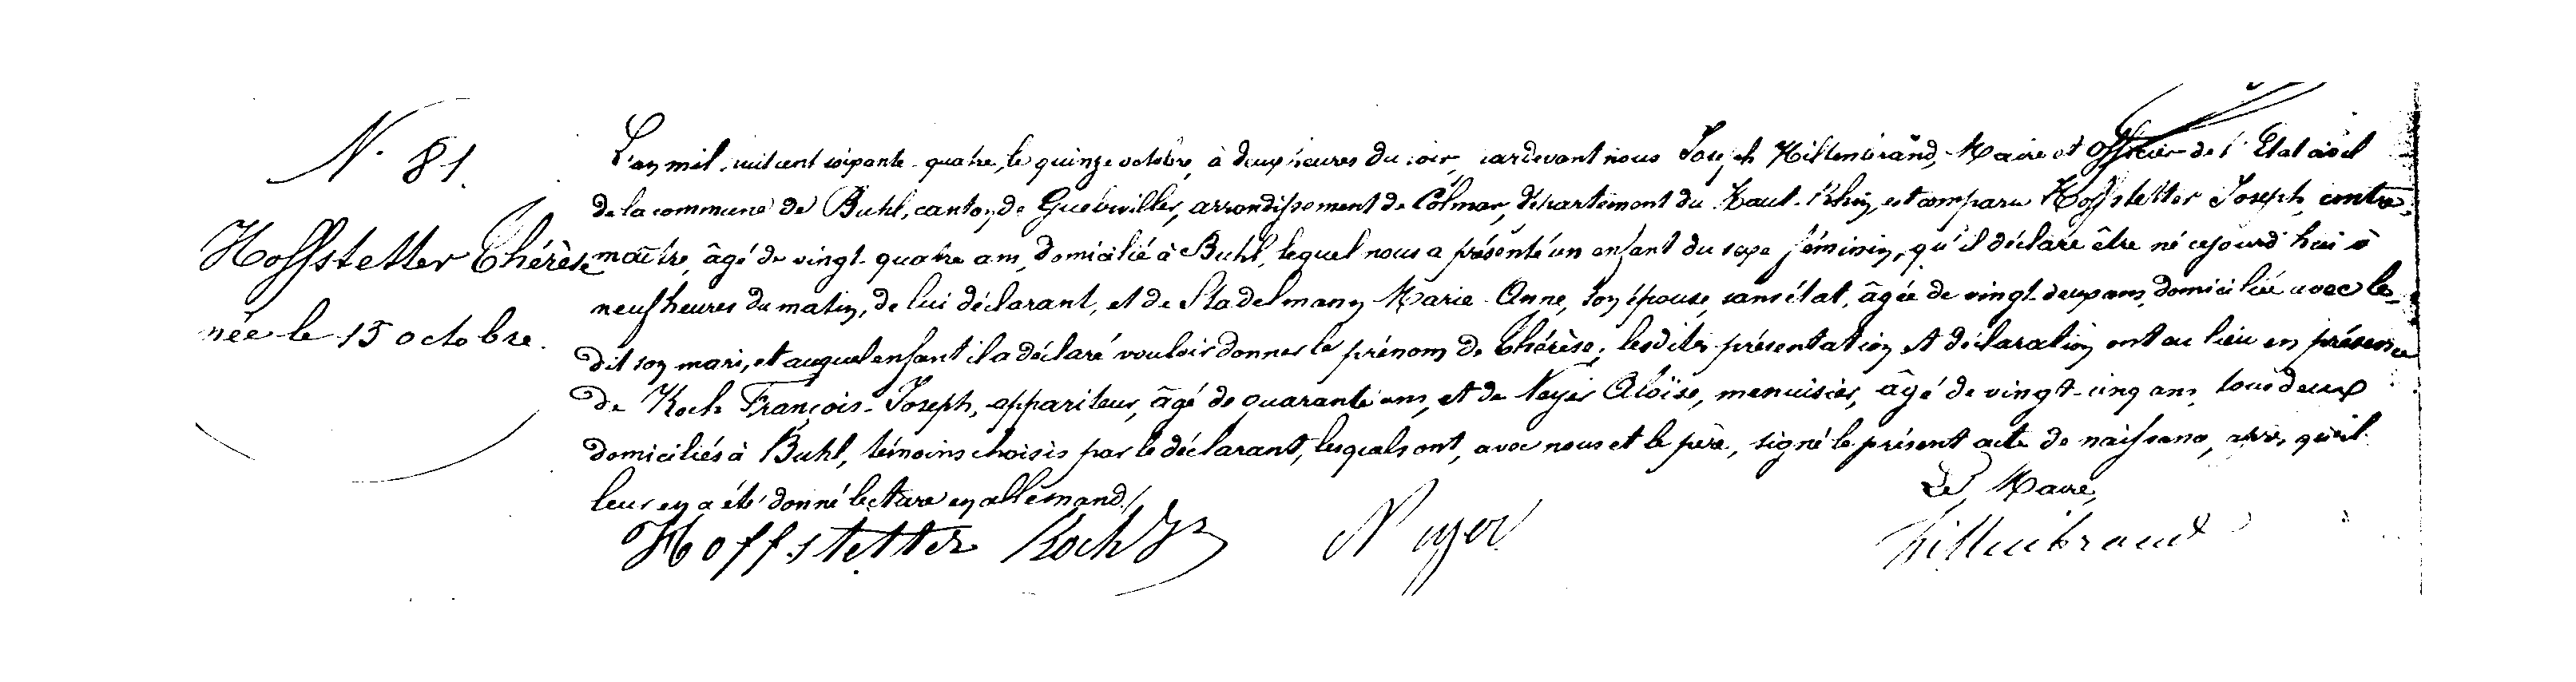 N. 81.
Hoffstetter Thérèse
née le 15 octobre.
L'an mil huit cent soixante-quatre, le quinze octobre, à deux heures du soir, pardevant nous Joseph Hiltenbrand, Maire et Officier de l'Etat civil
de la commune de Buhl, canton de Guebwiller, arrondissement de Colmar, département du Haut-Rhin, est comparu Hoffstetter Joseph, contre-
maître, âgé de vingt-quatre ans, domicilié à Buhl, lequel nous a présenté un enfant du sexe féminin, qu'il déclare être né cejourd'hui à
neuf heures du matin, de lui déclarant, et de Stadelmann Marie-Anne, son épouse, sans état, âgée de vingt-deux ans, domiciliée avec le-
dit son mari, et auquel enfant il a déclaré vouloir donner le prénom de Thérèse; lesdites présentation et déclaration ont eu lieu en présence
de Koch François-Joseph, appariteur, âgé de quarante ans, et de Neyer Aloïse, menuisier, âgé de vingt-cinq ans, tous deux
domiciliés à Buhl, témoins choisis par le déclarant, lesquels ont, avec nous et le père, signé le présent acte de naissance, après qu'il
leur en a été donné lecture en allemand./
Le Maire,
Hoffstetter Koch Neyer Hiltenbrand